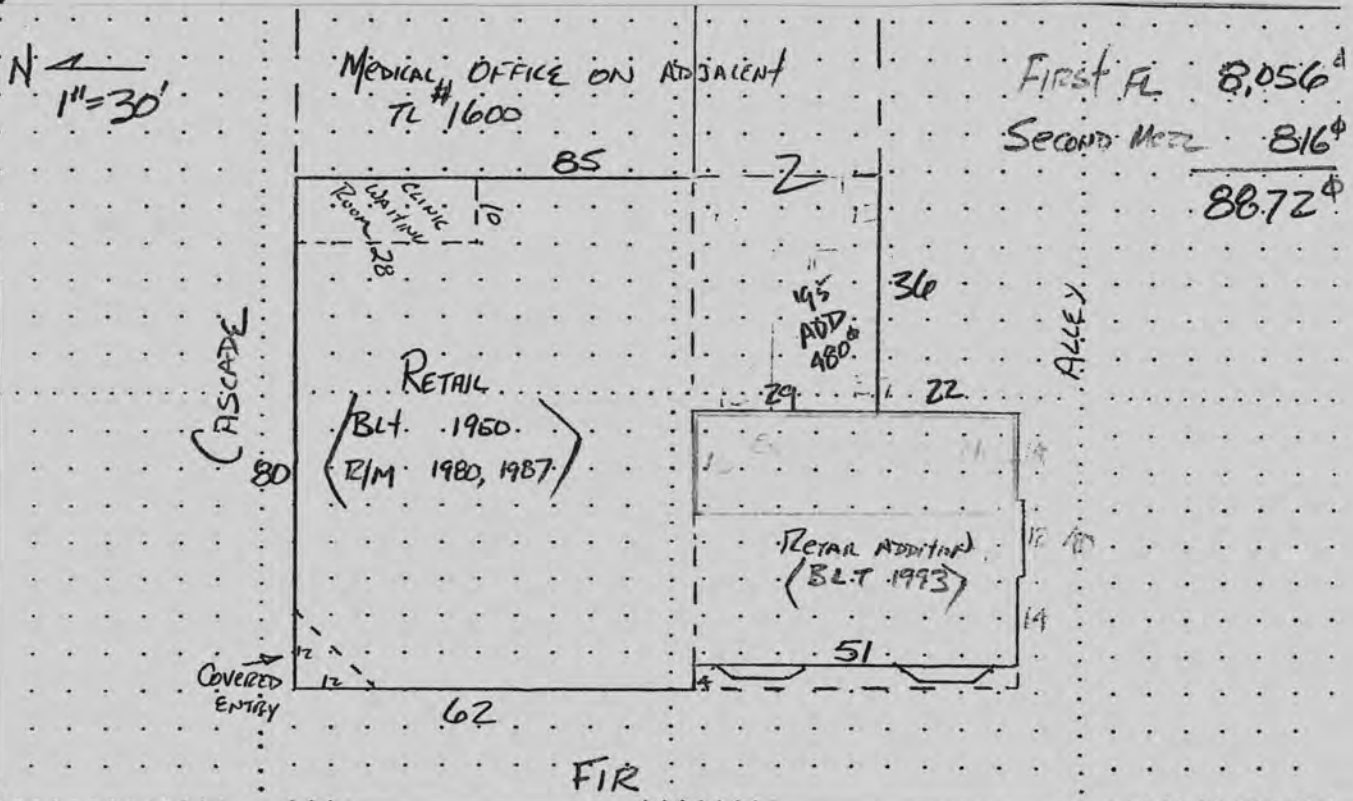 N
1"=30'
MEDICAL OFFICE ON ADJACENT
TL #1600
First FL 8,056
SECOND MEZZ 816
8872
85
2
CLINIC
WAITING
ROOM
10
28
195
ADD
480
36
ALLEY
CASCADE
RETAIL
BLT. 1960
R/M 1980, 1987
80
29
22
RETAIL ADDITION
(BLT 1993)
12
14
COVERED
ENTRY
12
12
51
4
62
FIR